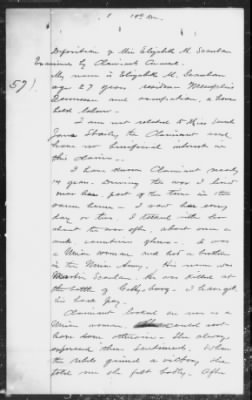 Deposition of Miss Elizabeth M. Scanlan
Examined by Claimant's Counsel.
57)
My name is Elizabeth M. Scanlan
age 27 years residence Memphis
Tennessee and occupation, a house
I am not related to Miss
Jane the Claimant and
have no beneficial interest in
this claim.
I have known Claimant nearly
years. During the war I lived
near her part of the time in the
same house. I saw her every
day or two. I talked with her
about the war often, about once a
week sometimes oftener. I was
a Union woman and had a brother
in the Union Army. His name was
Scanlan. He was killed at
the battle of Gettysburg. I have got
his back pay.
Claimant looked on me as a
Union woman could not
have been otherwise. She always
expressed Union sentiments. When
the rebels gained a victory she
told me she felt badly. After